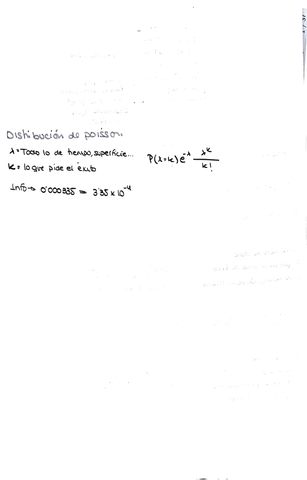 Distribución de poisson
λ = Todo lo de tiempo, superficie... P(x=k) e^-λ λ^k / k!
K = lo que pide el éxito
Info → 0'000335 = 3'35 x 10^-4